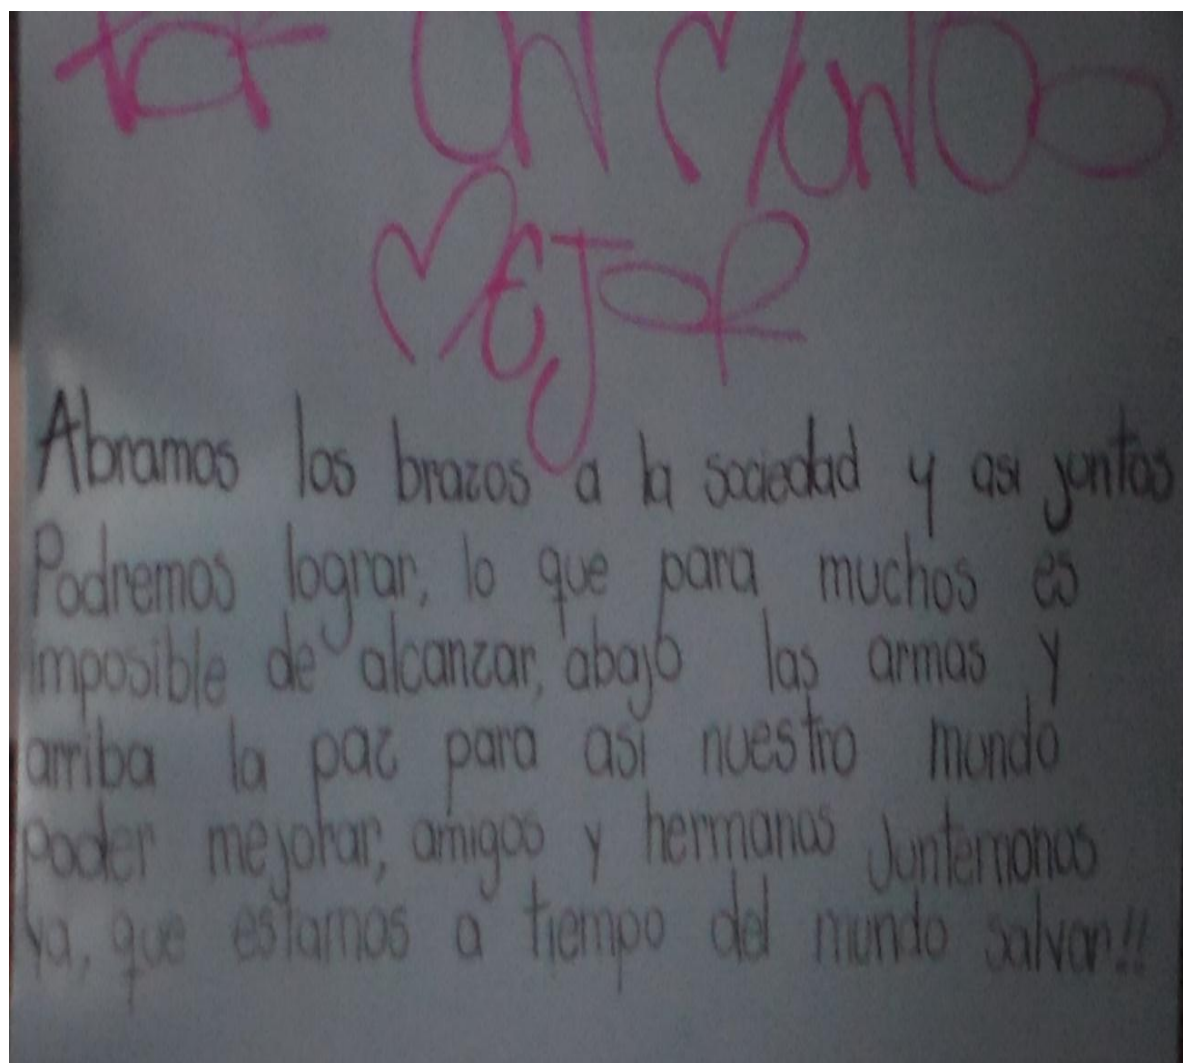 POR UN MUNDO
MEJOR
Abramos los brazos a la sociedad y asi juntos
Podremos lograr, lo que para muchos es
imposible de alcanzar, abajo las armas y
arriba la paz para asi nuestro mundo
poder mejorar, amigos y hermanos Juntemonos
ya, que estamos a tiempo del mundo salvar!!